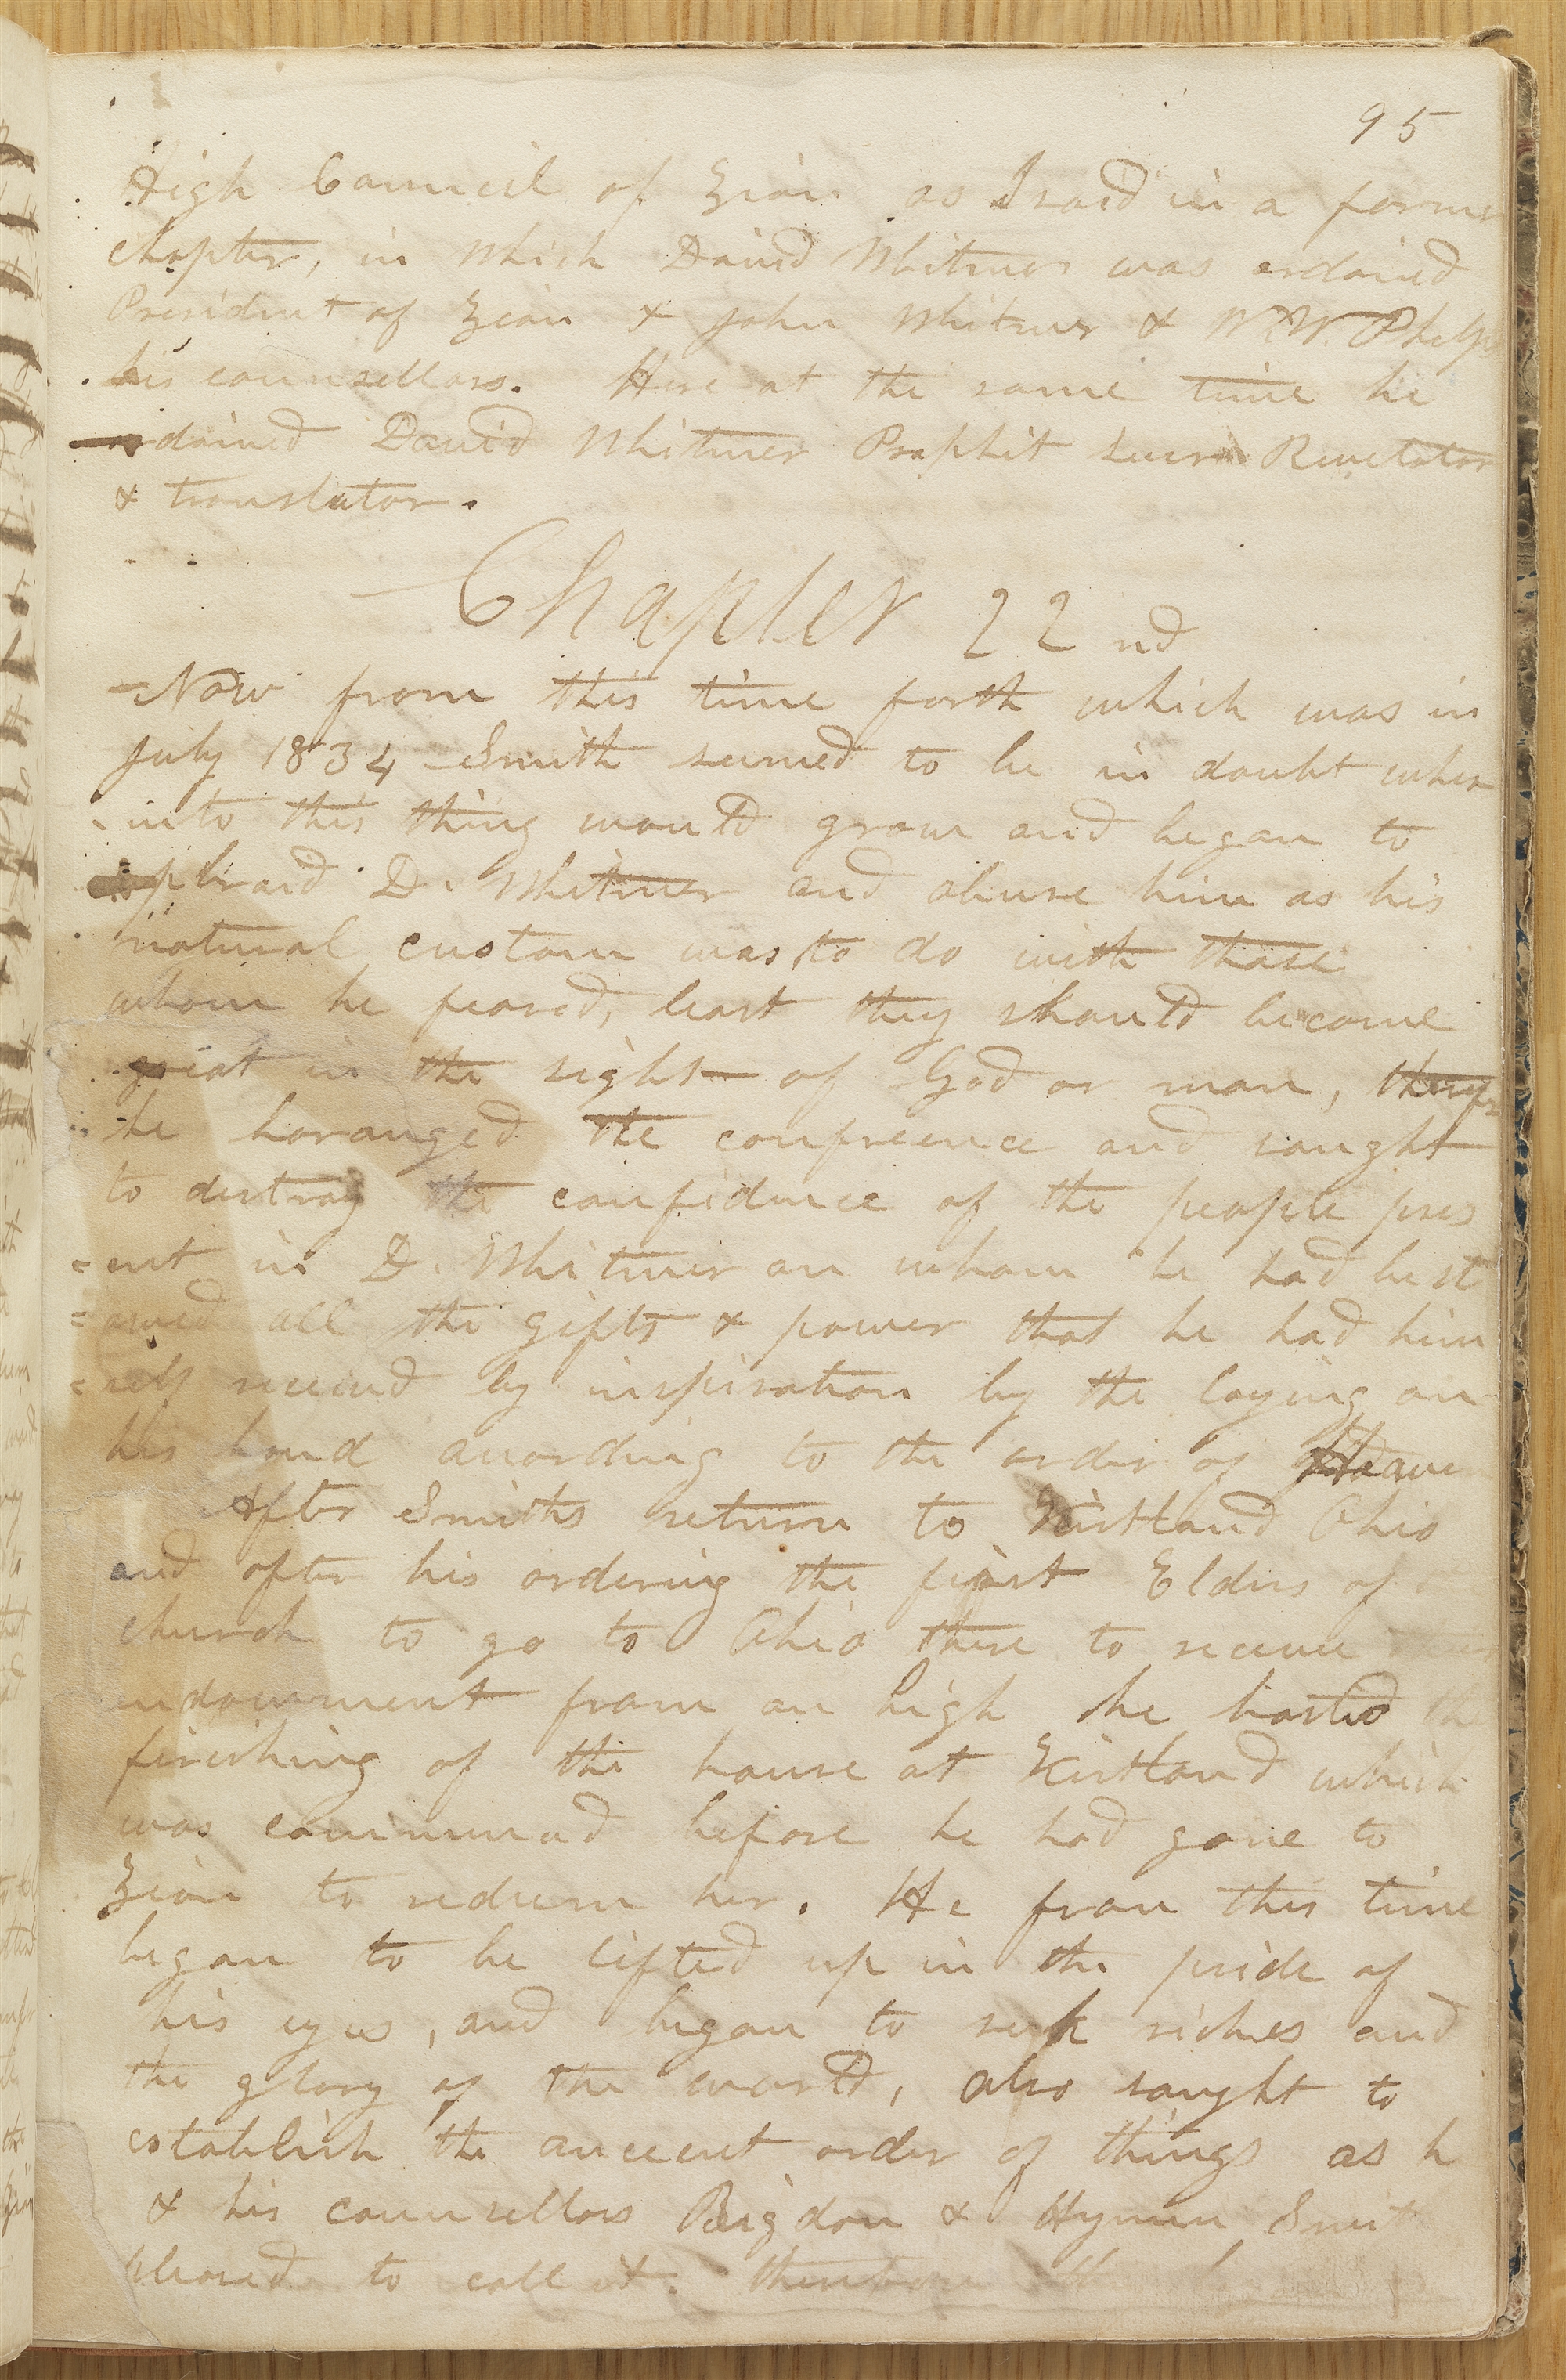 95
High Council of Zion as I said in a former
chapter, in which David Whitmer was ordained
President of Zion & John Whitmer & W. W. Phelps
his counsellors. Here at the same time he
ordained David Whitmer Prophit Seer Revelator
& translator.
Chapter 22nd
Now from this time forth which was in
July 1834 Smith seemed to be in doubt wher
-into this thing would grow and began to
upbraid D. Whitmer and abuse him as his
natural custom was to do with those
whom he feared, least they should become
great in the sight of God or man,
he haranged the confreence and saught
to distroy the confidence of the people pres
=ent in D. Whitmer on whom he had best
=owed all the gifts & power that he had him
=self received by inspiration by the laying on
his hand according to the order of Heaven
After Smiths return to Kirtland Ohio
and after his ordering the first Elders of
church to go to Ohio there to receive
endowment from on high he hasted the
finishing of the house at Kirtland which
was commenced before he had gone to
Zion to redeem her. He from this time
began to be lifted up in the pride of
his eyes, and began to seek riches and
the glory of the world, also saught to
establish the ancient order of things as h
& his counsellors Rigdon & Hyrum Smit
pleased to call it. therefore